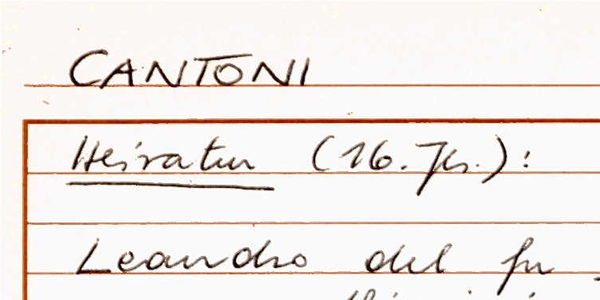 CANTONI
Heiratur (16. Jh.):
Leandro del fu